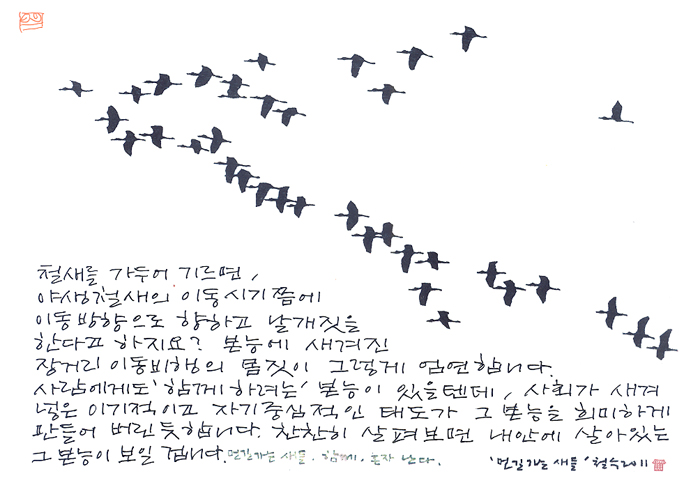 철새를 가두어 기르면,
야생철새의 이동시기쯤에
이동방향으로 향하고 날개짓을
한다고 하지요? 본능에 새겨진
장거리 이동비행의 몸짓이 그렇게 엄연합니다.
사람에게도 '함께하려는' 본능이 있을텐데, 사회가 새겨
넣은 이기적이고 자기중심적인 태도가 그 본능을 희미하게
만들어 버린듯합니다. 찬찬히 살펴보면 내안에 살아있는
그 본능이 보일 겁니다. 먼길가는 새들. 함께, 혼자 난다.
'먼길가는 새들' 철수2011